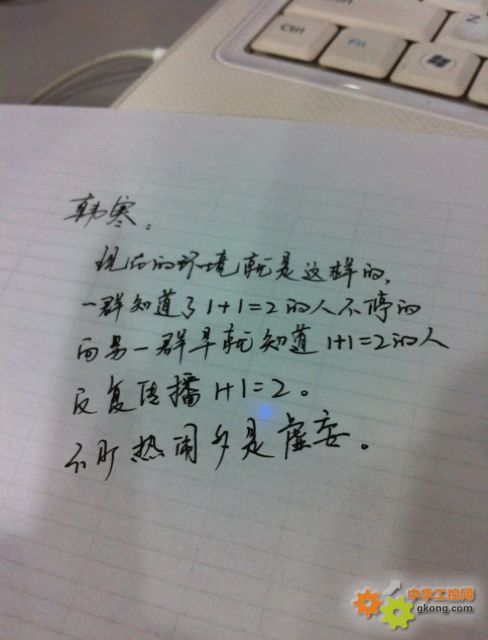 Z
Ctrl Fn
韩寒：
现在的环境就是这样的，
一群知道了1+1=2的人不停的
向另一群早就知道1+1=2的人
反复传播1+1=2。
不时热闹多是虚妄。
中华工控网
gkong.com